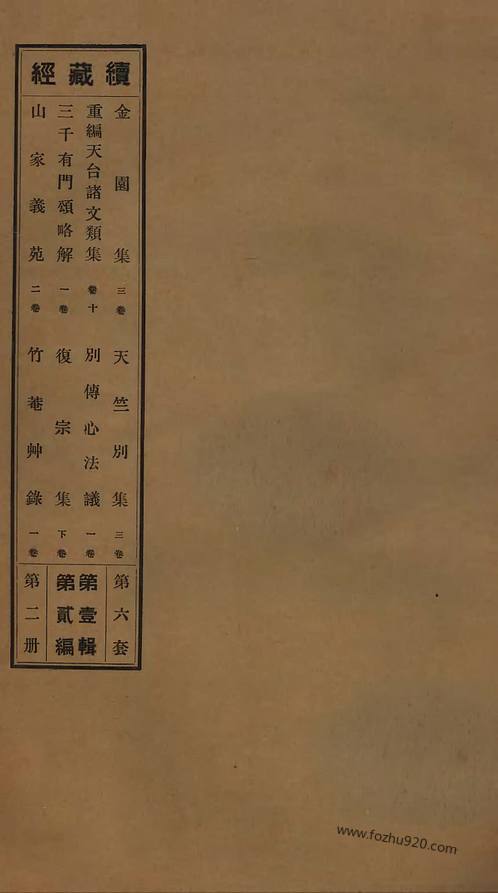 續藏經
金園集 三卷 天竺別集 三卷
重編天台諸文類集 卷十 別傳心法議 一卷
三千有門頌略解 一卷 復宗集 下卷
山家義苑 二卷 竹菴艸錄 一卷
第六套
第壹輯
第貳編
第二册
www.fozhu920.com